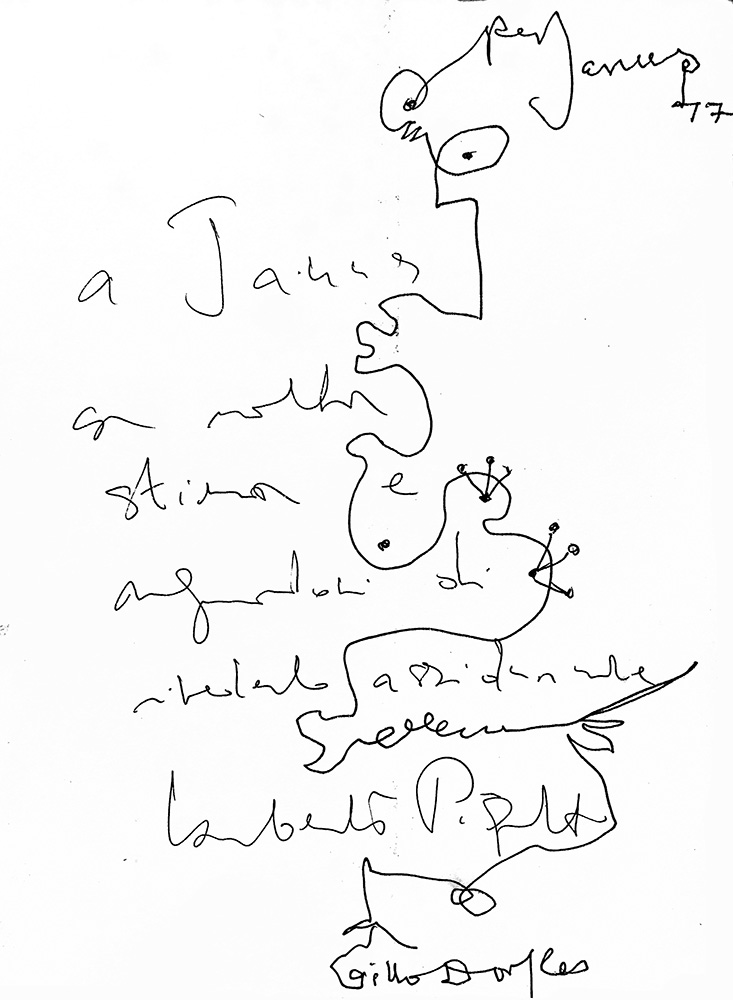 per Janus
77
a Janus
con molta
stima e
augurandomi di
rivederlo assiduamente
Lamberto Pignotti
Gillo Dorfles